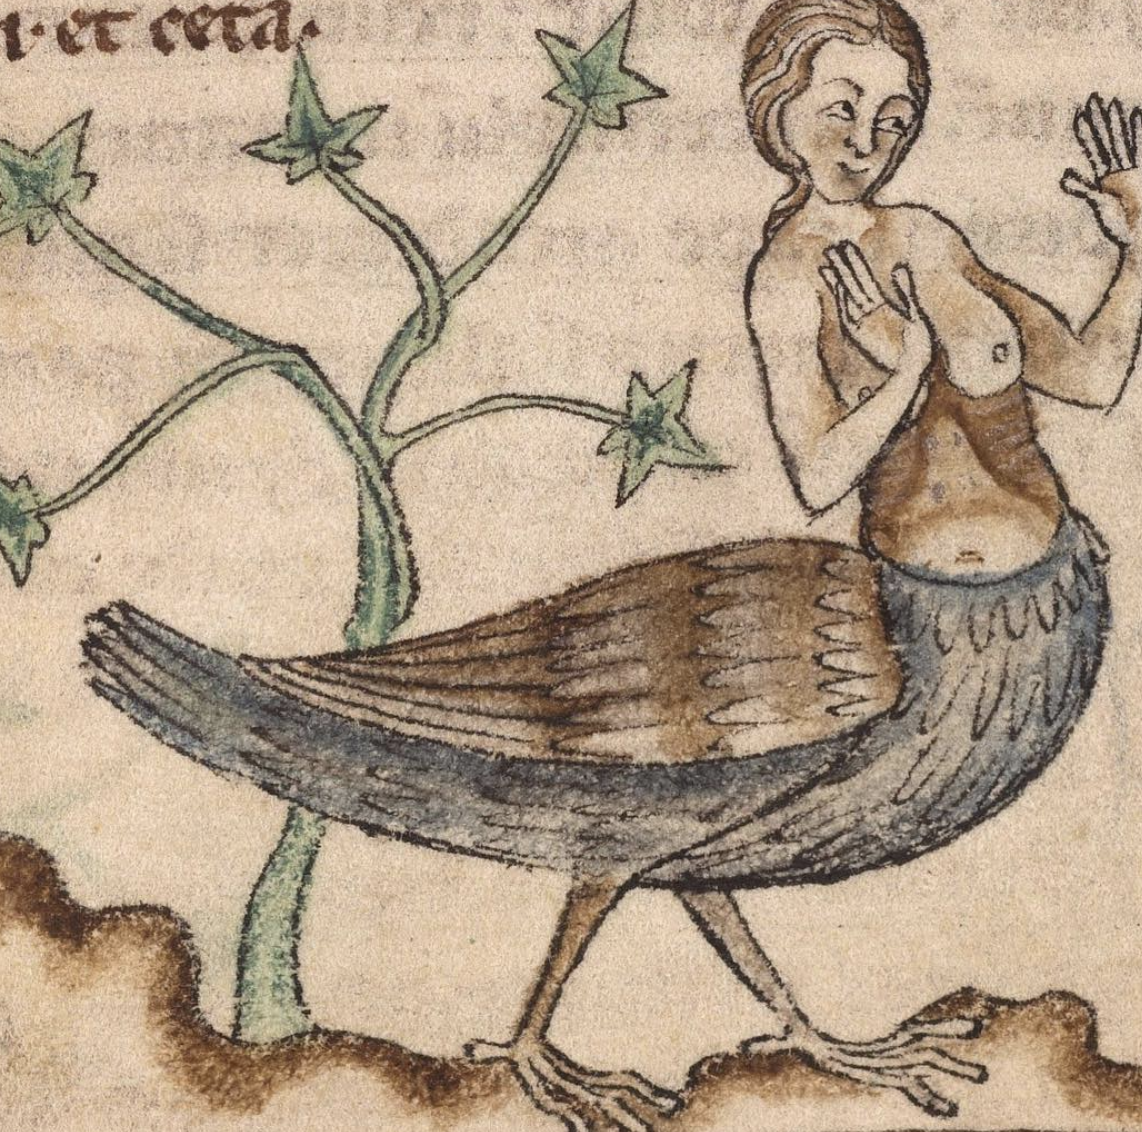 i· et ceta·